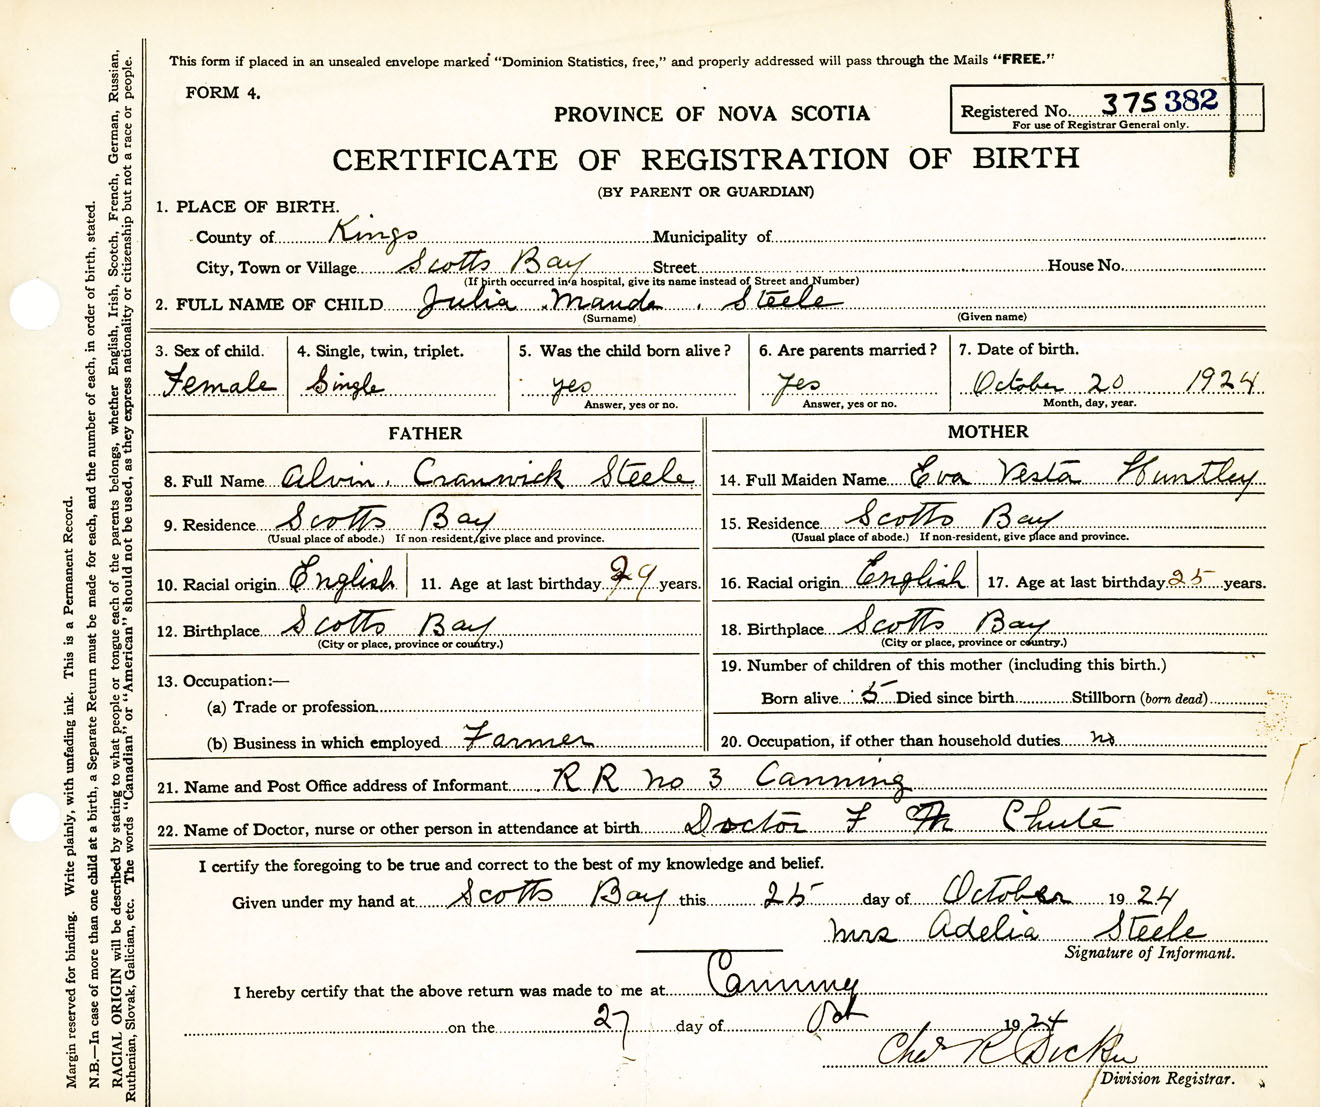 This form if placed in an unsealed envelope marked "Dominion Statistics, free," and properly addressed will pass through the Mails "FREE."
FORM 4.
PROVINCE OF NOVA SCOTIA
Registered No. 375382
For use of Registrar General only.
CERTIFICATE OF REGISTRATION OF BIRTH
(BY PARENT OR GUARDIAN)
1. PLACE OF BIRTH.
County of Kings Municipality of
City, Town or Village Scotts Bay Street House No.
(If birth occurred in a hospital, give its name instead of Street and Number)
2. FULL NAME OF CHILD Julia Maude Steele
(Surname) (Given name)
3. Sex of child. 4. Single, twin, triplet. 5. Was the child born alive? 6. Are parents married? 7. Date of birth.
Female Single yes yes October 20 1924
Answer, yes or no. Answer, yes or no. Month, day, year.
FATHER MOTHER
8. Full Name Alvin Cranwick Steele 14. Full Maiden Name Eva Vesta Huntley
9. Residence Scotts Bay 15. Residence Scotts Bay
(Usual place of abode.) If non-resident, give place and province. (Usual place of abode.) If non-resident, give place and province.
10. Racial origin English 11. Age at last birthday 29 years. 16. Racial origin English 17. Age at last birthday 25 years.
12. Birthplace Scotts Bay 18. Birthplace Scotts Bay
(City or place, province or country.) (City or place, province or country.)
13. Occupation:— 19. Number of children of this mother (including this birth.)
(a) Trade or profession Born alive 5 Died since birth Stillborn (born dead)
(b) Business in which employed Farmer 20. Occupation, if other than household duties no
21. Name and Post Office address of Informant R R no 3 Canning
22. Name of Doctor, nurse or other person in attendance at birth Doctor F M Chute
I certify the foregoing to be true and correct to the best of my knowledge and belief.
Given under my hand at Scotts Bay this 25 day of October 1924
Mrs Adelia Steele
Signature of Informant.
I hereby certify that the above return was made to me at Canning
on the 27 day of Oct 1924
Chas R Dickie
Division Registrar.
Margin reserved for binding. Write plainly, with unfading ink. This is a Permanent Record.
N.B.—In case of more than one child at a birth, a Separate Return must be made for each, and the number of each, in order of birth, stated.
RACIAL ORIGIN will be described by stating to what people or tongue each of the parents belongs, whether English, Irish, Scotch, French, German, Russian,
Ruthenian, Slovak, Galician, etc. The words "Canadian" or "American" should not be used, as they express nationality or citizenship but not a race or people.